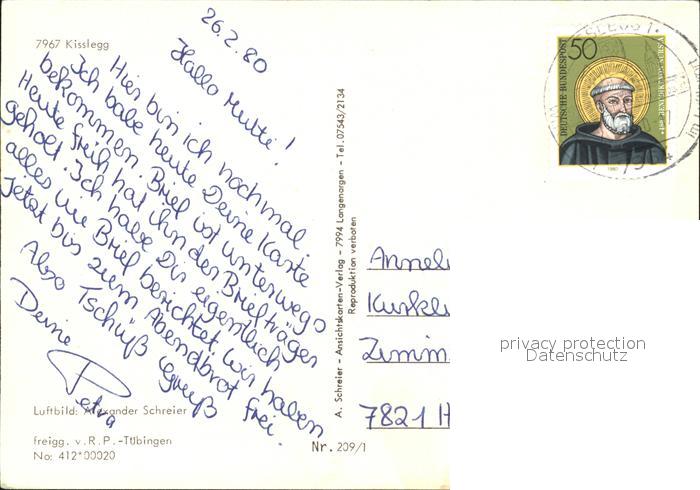 7967 Kisslegg
26.2.80
Hallo Mutti!
Hier bin ich nochmal.
Ich habe heute Deine Karte
bekommen. Brief ist unterwegs
Heute früh hat ihn der Briefträger
geholt. Ich habe Dir eigentlich
alles im Brief berichtet. Wir haben
jetzt bis zum Abendbrot frei.
Also Tschüß Gruß
Deine
Petra
Luftbild: Alexander Schreier
freigg. v. R.P.-Tübingen
No: 412*00020
Nr. 209/1
A. Schreier - Ansichtskarten-Verlag - 7994 Langenargen - Tel. 07543/2134
Reproduktion verboten
50
DEUTSCHE BUNDESPOST
1980
Anneli
Kurkli
Zimm
7821 H
privacy protection
Datenschutz